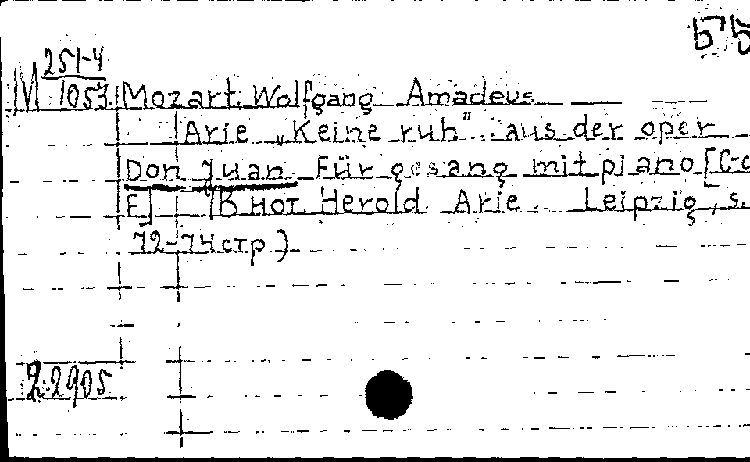 575
M 251-4
1053
Mozart, Wolfgang Amadeus
Arie „Keine ruh" aus der oper
Don Juan Für gesang mit piano [C-c
F] (В нот. Herold Arie. Leipzig, s.
72-74 стр.)
2.2905